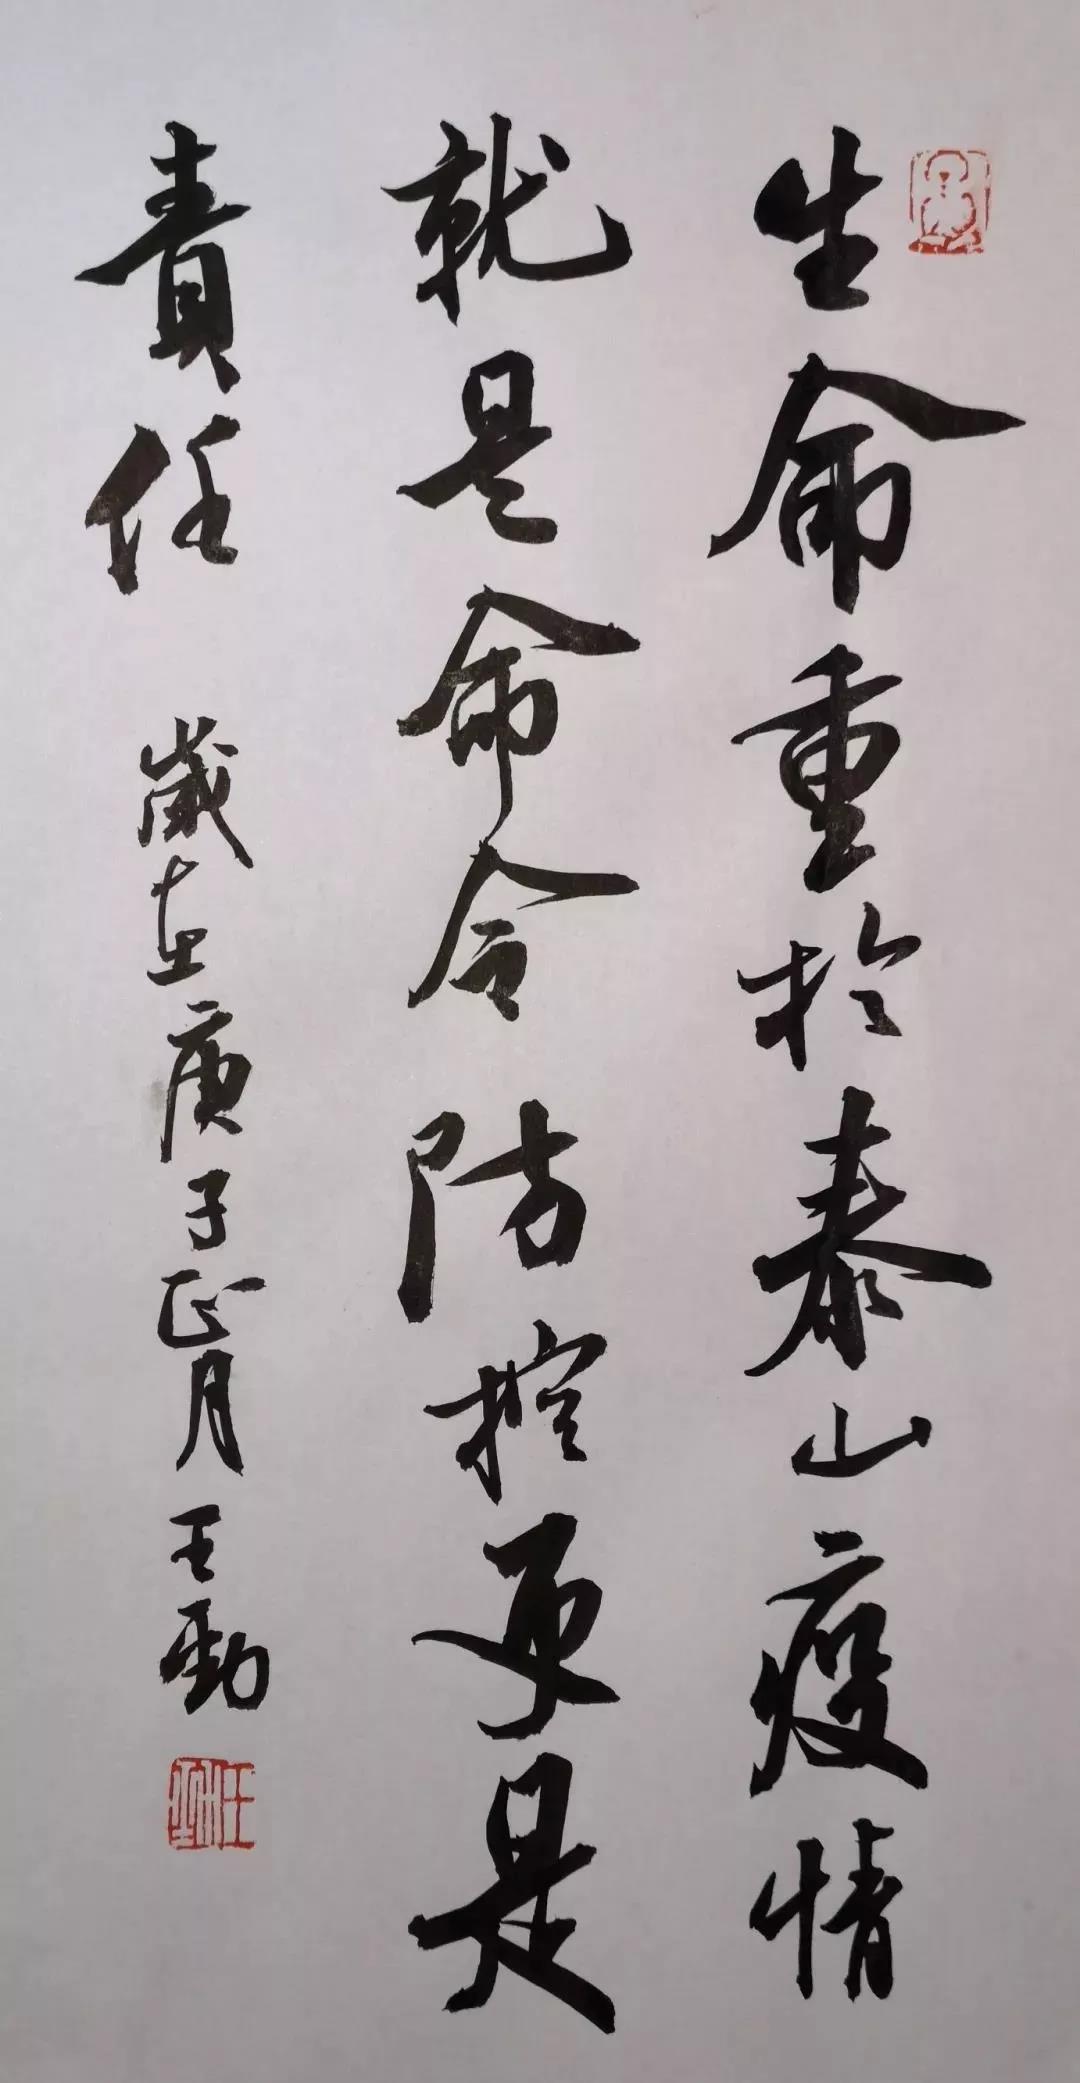 生命重於泰山疫情
就是命令防控更是
責任 歲在庚子正月王勁